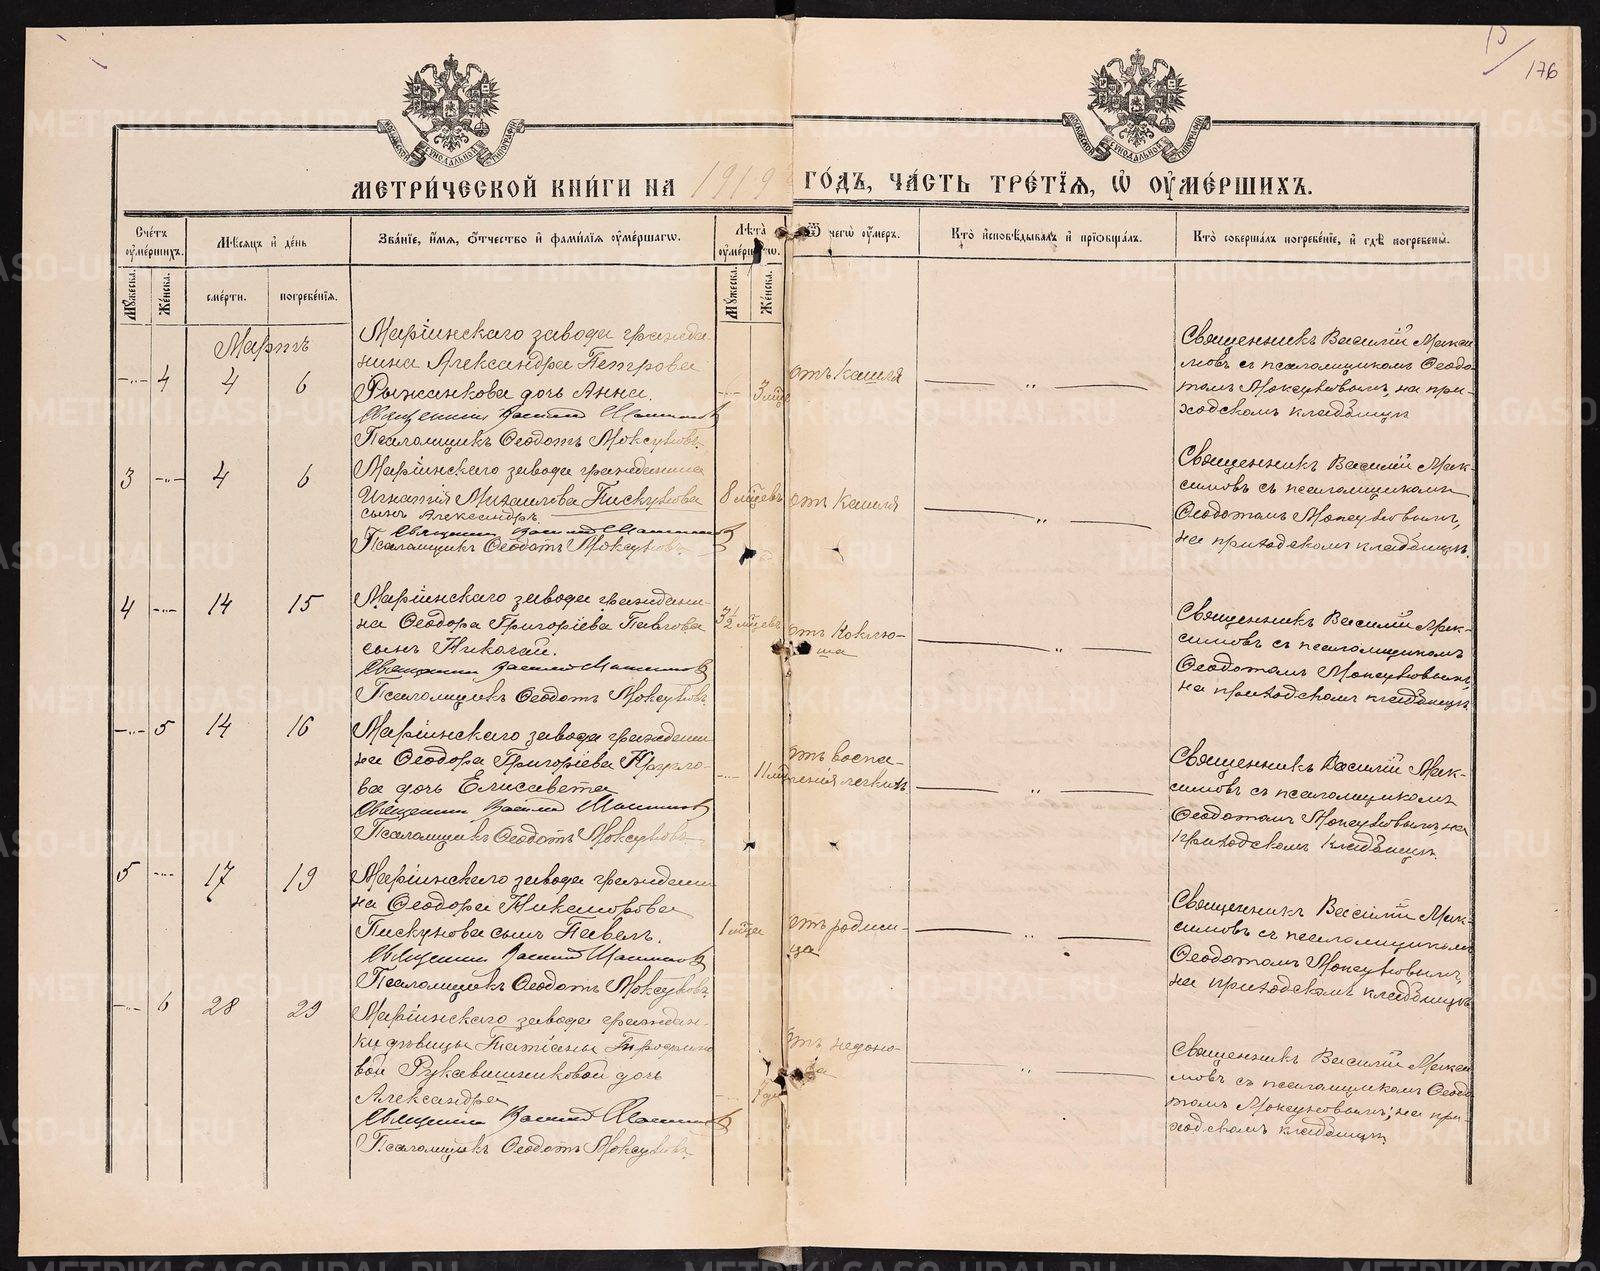 15
176
МОСКОВСКОЙ СѴНОДАЛЬНОЙ ТИПОГРАФІИ
МОСКОВСКОЙ СѴНОДАЛЬНОЙ ТИПОГРАФІИ
МЕТРИ́ЧЕСКОЙ КНИ́ГИ НА 1919 ГО́ДЪ, ЧА́СТЬ ТРЕ́ТІѦ, Ѡ҆ ОУ҆МЕ́РШИХЪ.
Счетъ оу҆ме́ршихъ.
Мѣсяцъ и҆ де́нь
Зва́нїе, и҆́мѧ, ѻ҆́тчество и҆ фами́лїѧ оу҆ме́ршагѡ.
Лѣта̀ оу҆ме́ршагѡ.
Ѿ чегѡ̀ оу҆́меръ.
Кто̀ и҆сповѣ́дывалъ и҆ прїѡбща́лъ.
Кто̀ соверша́лъ погребе́нїе, и҆ гдѣ̀ погребены̀.
Мꙋ́жеска.
Же́нска.
сме́рти.
погребе́нїѧ.
Мꙋ́жеска.
Же́нска.
Мартъ
-„- 4 4 6
Маріинскаго завода гражда
нина Александра Петрова
Рыжанкова дочь Анна.
Священникъ Василій Максимовъ
Псаломщикъ Ѳеодотъ Моксуновъ.
-„- 3 мѣс
отъ Кашля
— „ —
Священникъ Василій Макси
мовъ съ псаломщикомъ Ѳеодо
томъ Моксуновымъ на при-
ходскомъ кладбищѣ
3 -„- 4 6
Маріинскаго завода гражданина
Игнатія Михаилова Пискунова
сынъ Александръ.
Священникъ Василій Максимовъ
Псаломщикъ Ѳеодотъ Моксуновъ.
8 мѣсяцевъ
отъ Кашля
— „ —
Священникъ Василій Мак-
симовъ съ псаломщикомъ
Ѳеодотомъ Моксуновымъ,
на приходскомъ кладбищѣ.
4 -„- 14 15
Маріинскаго завода граждани-
на Ѳеодора Григоріева Павлова
сынъ Николай.
Священникъ Василій Максимовъ
Псаломщикъ Ѳеодотъ Моксуновъ
3½ мѣсяцевъ
отъ Коклю-
ша
— „ —
Священникъ Василій Мак-
симовъ съ псаломщикомъ
Ѳеодотомъ Моксуновымъ,
на приходскомъ кладбищѣ.
-„- 5 14 16
Маріинскаго завода граждани
на Ѳеодора Григоріева
ва дочь Елисавета
Священникъ Василій Максимовъ
Псаломщикъ Ѳеодотъ Моксуновъ.
-„- 11
отъ воспа-
ленія легкихъ
— „ —
Священникъ Василій Мак-
симовъ съ псаломщикомъ
Ѳеодотомъ Моксуновымъ, на
приходскомъ кладбищѣ.
5 -„- 17 19
Маріинскаго завода граждани
на Ѳеодора Никанорова
Пискунова сынъ Павелъ.
Священникъ Василій Максимовъ
Псаломщикъ Ѳеодотъ Моксуновъ.
1 мѣсяца
отъ родим-
ца
— „ —
Священникъ Василій Мак-
симовъ съ псаломщикомъ
Ѳеодотомъ Моксуновымъ,
на приходскомъ кладбищѣ
-„- 6 28 29
Маріинскаго завода граждан-
ки дѣвицы Татіаны Трофимо
вой Рукавишниковой дочь
Александра
Священникъ Василій Максимовъ
Псаломщикъ Ѳеодотъ Моксуновъ.
отъ недоно-
— „ —
Священникъ Василій Макси
мовъ съ псаломщикомъ Ѳеодо
томъ Моксуновымъ, на при
ходскомъ кладбищѣ.